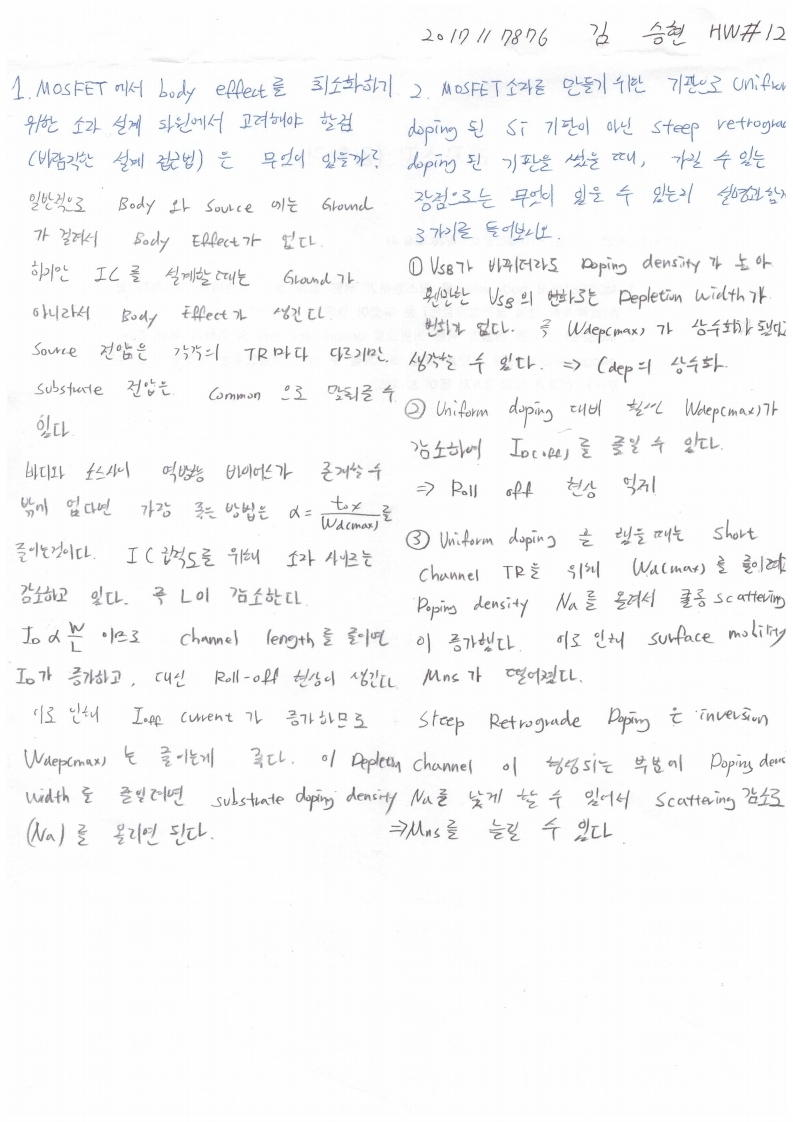 2017117876 김 승현 HW#12
1. MOSFET에서 body effect를 최소화하기
위한 소자 설계 차원에서 고려해야 할점
(바람직한 설계 접근법)은 무엇이 있을까?
일반적으로 Body 와 Source 에는 Ground
가 걸려서 Body Effect가 없다.
하지만 IC를 설계할때는 Ground가
아니라서 Body Effect가 생긴다.
Source 전압은 각각의 TR마다 다르지만,
substrate 전압은 Common 으로 맞춰줄 수
있다.
바디와 소스사이 역방향 바이어스가 존재할 수
밖에 없다면 가장 좋은 방법은 α = tox/Wd(max)를
줄이는것이다. IC집적도를 위해 소자 사이즈는
감소하고 있다. 즉 L이 감소한다.
ID α W/L 이므로 channel length를 줄이면
ID가 증가하고, 대신 Roll-off 현상이 생긴다.
이로 인해 Ioff current가 증가하므로
Wdep(max) 는 줄이는게 좋다. 이 Depletion
width를 줄일려면 substrate doping density
(Na)를 올리면 된다.
2. MOSFET 소자를 만들기 위한 기판으로 Unifor
doping 된 Si 기판이 아닌 steep retrograd
doping 된 기판을 썼을 때, 가질 수 있는
장점으로는 무엇이 있을 수 있는지 설명과 함께
3가지를 들어보시오.
① VSB가 바뀌더라도 Doping density가 높아
웬만한 VSB의 변화로는 Depletion width가
변화가 없다. 즉 Wdep(max)가 상수화가 됐다고
생각할 수 있다. ⇒ Cdep의 상수화.
② Uniform doping 대비 훨씬 Wdep(max)가
감소하여 ID(off)를 줄일 수 있다.
⇒ Roll off 현상 억제
③ Uniform doping 을 했을때는 short
Channel TR을 위해 Wd(max)를 줄이려고
Doping density Na를 올려서 쿨롱 scattering
이 증가했다. 이로 인해 surface mobility
Mns가 떨어졌다.
Steep Retrograde Doping 은 inversion
Channel 이 형성되는 부분에 Doping dens
Na를 낮게 할 수 있어서 scattering 감소로
⇒Mns를 늘릴 수 있다